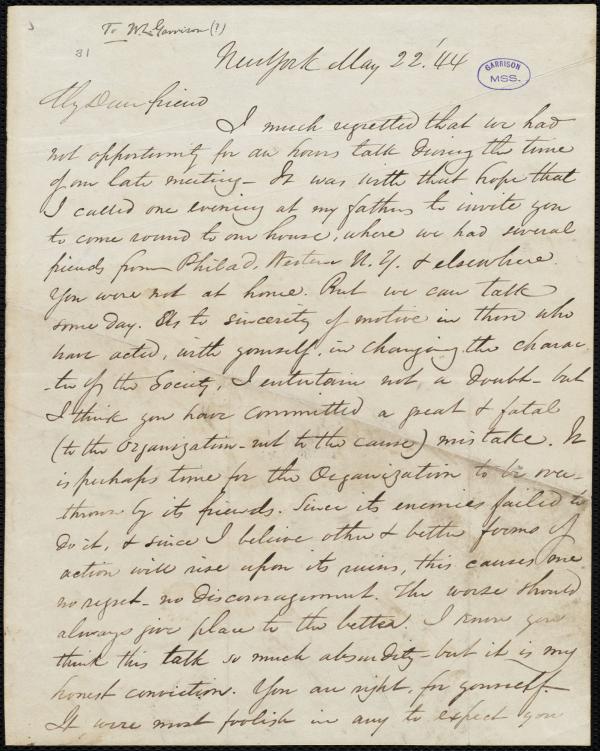 To W. L. Garrison (?)
31
New York May 22. '44
GARRISON
MSS.
My Dear friend
I much regretted that we had
not opportunity for an hours talk during the time
of our late meeting - It was with that hope that
I called one evening at my fathers to invite you
to come round to our house, where we had several
friends from Philad, Western N. Y. & elsewhere.
You were not at home. But we can talk
some day. As to sincerity of motive in those who
have acted, with yourself, in changing the charac-
-ter of the Society, I entertain not a doubt - but
I think you have committed a great & fatal
(to the Organization - not to the cause) mistake. It
is perhaps time for the Organization to be over-
thrown by its friends. Since its enemies failed to
do it, & since I believe other & better forms of
action will rise upon its ruins, this causes me
no regret - no discouragement. The worse should
always give place to the better. I know you
think this talk so much absurdity - but it is my
honest conviction. You are right, for yourself -
It were most foolish in any to expect you